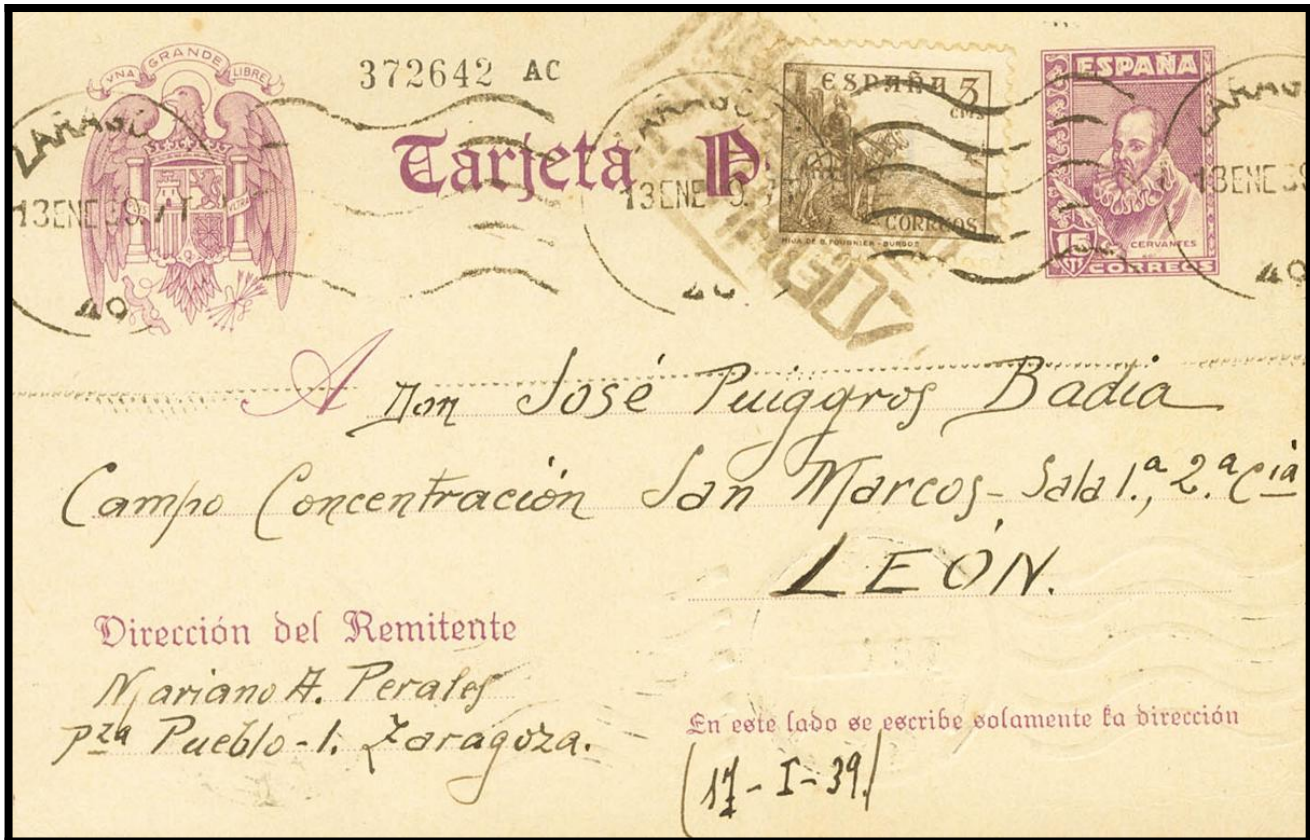 UNA GRANDE LIBRE
372642 AC
Tarjeta P
ESPAÑA 5
CMS
CORREOS
HIJA DE B. FOURNIER - BURGOS
ESPAÑA
15
CTS
CERVANTES
CORREOS
13 ENE 39
13 ENE
13 ENE 39
A Don José Puiggros Badia
Campo Concentración San Marcos - Sala 1.ª, 2.ª Cia
LEÓN.
Dirección del Remitente
Mariano A. Perales
Pza Pueblo - 1. Zaragoza.
En este lado se escribe solamente la dirección
(17 - I - 39.)